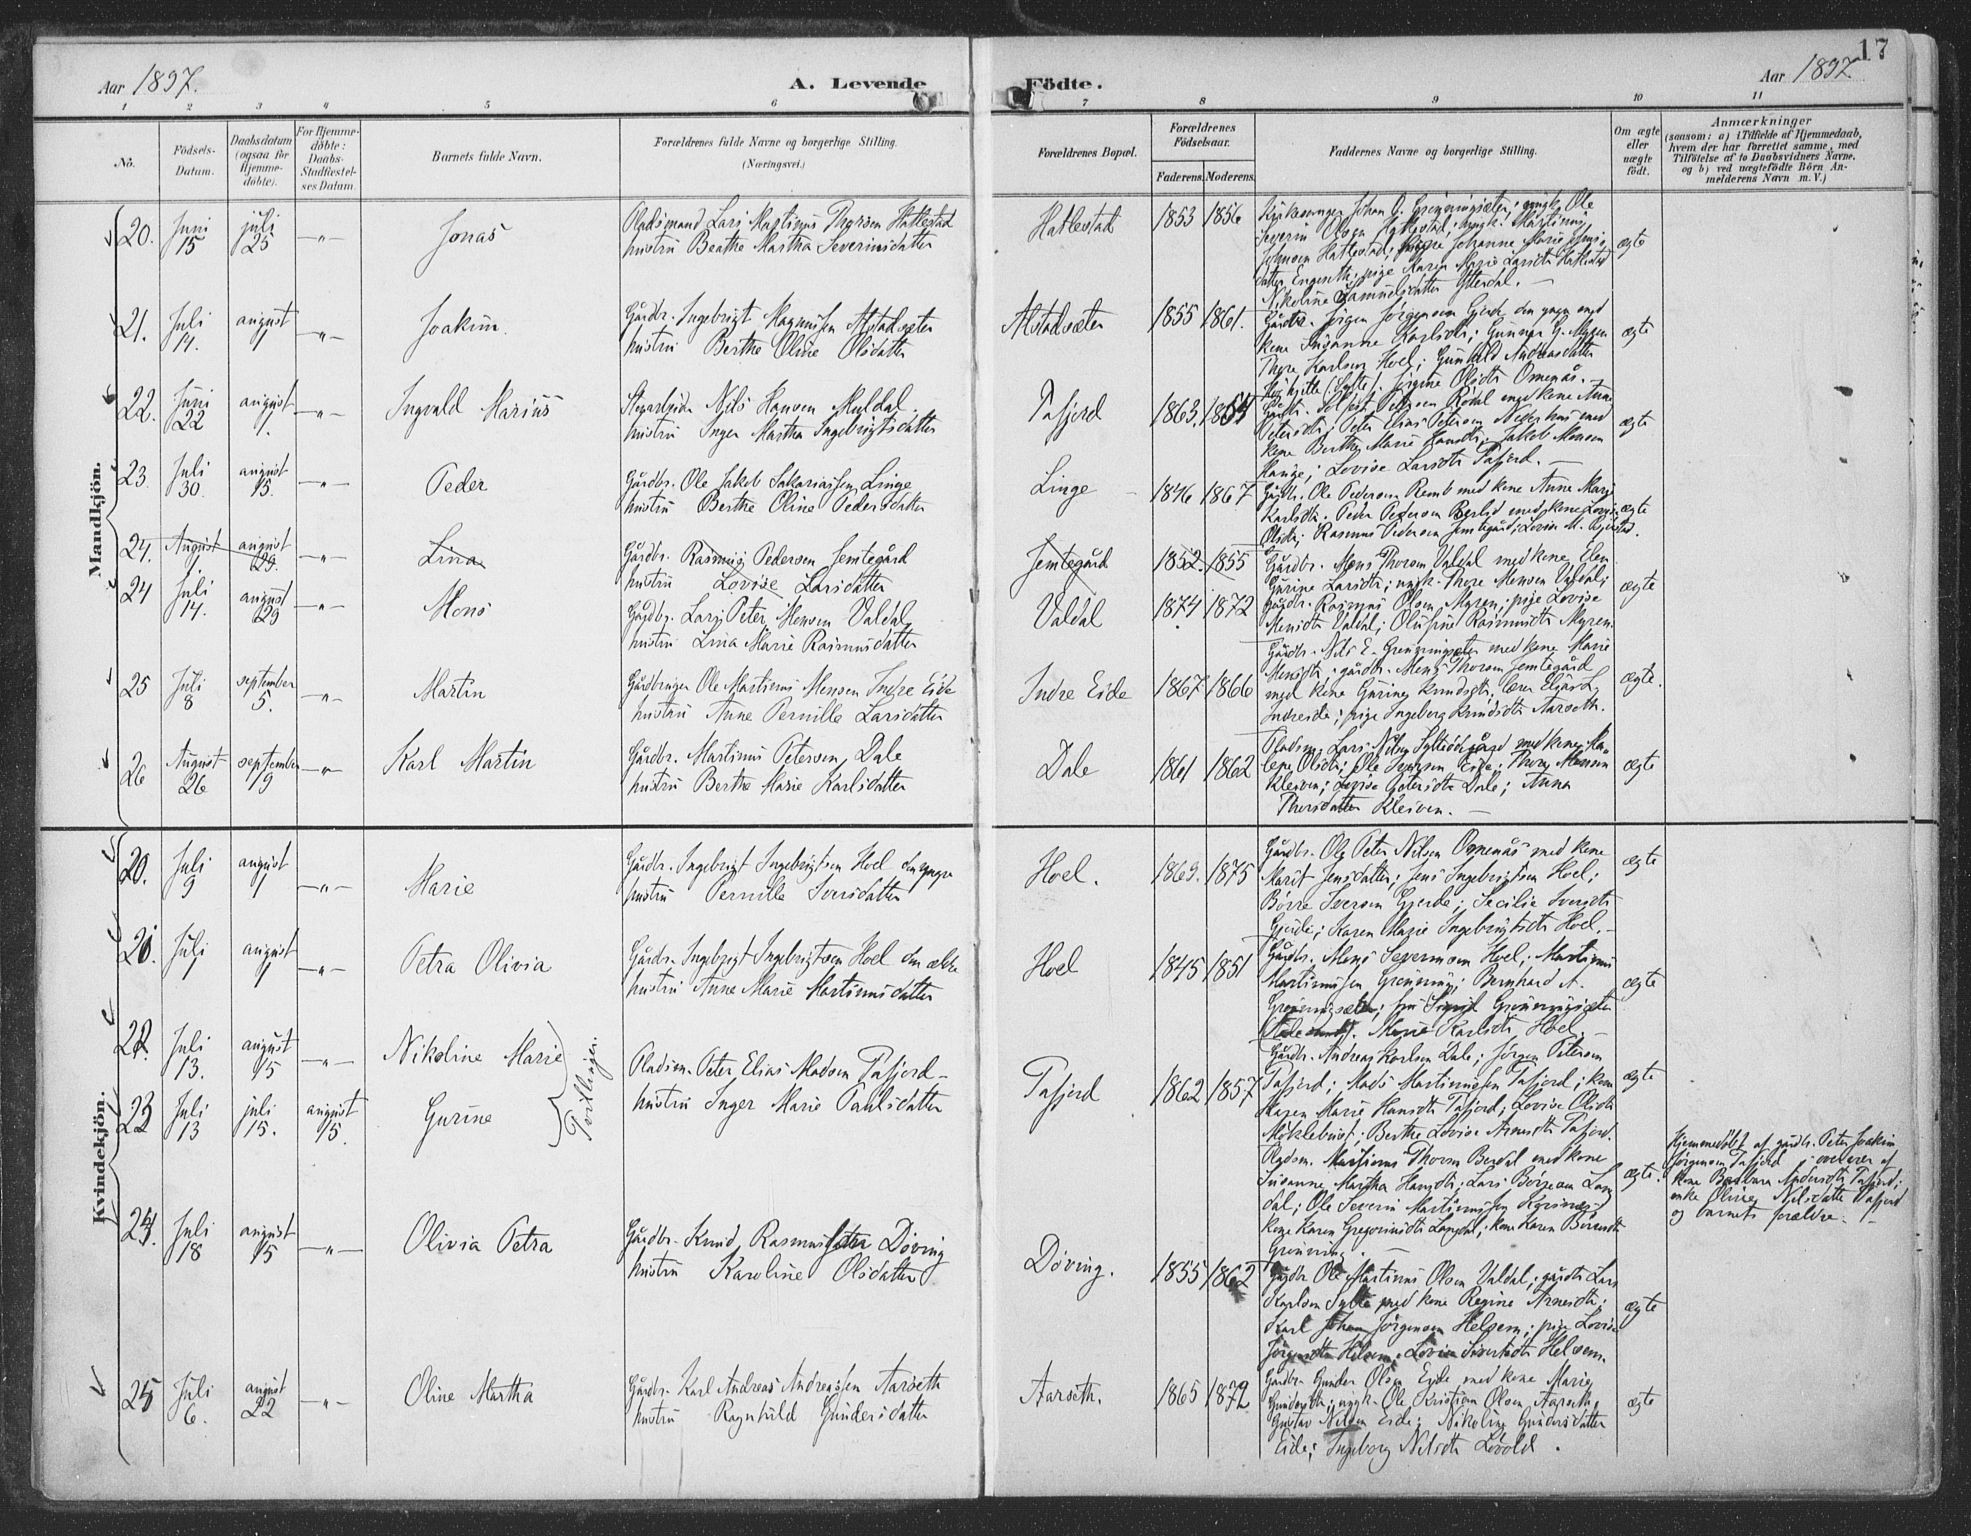 17
Aar 1897.
A. Levende Födte.
Aar 1897
1 2 3 4 5 6 7 8 9 10 11
No.
Födsels-Datum.
Daabsdatum (ogsaa for Hjemme-döbte).
For Hjemme-döbte: Daabs-Stadfæstel-ses Datum.
Barnets fulde Navn.
Forældrenes fulde Navne og borgerlige Stilling. (Næringsvei.)
Forældrenes Bopæl.
Forældrenes Födselsaar.
Faderens. Moderens.
Faddernes Navne og borgerlige Stilling.
Om ægte eller uægte födt.
Anmærkninger
(saasom: a) i Tilfælde af Hjemmedaab, hvem der har forrettet samme, med Tilföielse af to Daabsvidners Navne, og b) ved uægtefödte Börn An-melderens Navn m. V.)
Mandkjön.
20. Juni 15 juli 25 -"- Jonas
Pladsmand Lars Martinus Thorsen Hatlestad
hustru Beathe Martha Severinsdatter
Hatlestad 1853 1856
Kirkesanger Johan G. Grönningsæter; ungk. Ole
Severin Olsen Hatlestad; ungk. Martinus
Johnsen Hatlestad; pige Johanne Marie Jens-
datter Engeseth; pige Karen Marie Larsdtr Hatlestad
Nikoline Samuelsdatter Ytterdal. -
ægte
21. Juli 14. august 1 -"- Joakim.
Gårdbr. Ingebrigt Magnussen Alstadsæter
hustru Berthe Oline Olsdatter
Alstadsæter 1855 1861.
Gårdbr. Jörgen Jörgensen Gjerde den yngre med
kone Susanne Karlsdtr; Gunnar G. Myren
Thore Karlsen Hoel; Gunhild Andreasdatter
(Sylte). Jörgine Olsdtr Omenås. -
ægte
22. Juni 22 august 1. -"- Ingvald Marius
Nils Hansen Muldal
hustru Inger Martha Ingebrigtsdatter
Tafjord 1863. 1854
Petersdtr; Peter Elias Petersen med
kone Berthe Marie Hansdtr; Jakob Monsen
Lovise Larsdtr Tafjord. -
ægte
23 Juli 30. august 15. -"- Peder
Gårdbr. Ole Jakob Sakariassen Linge
hustru Berthe Oline Pedersdatter
Linge 1846 1867
Gårdbr. Ole Pedersen Remb med kone Anne Marie
Karlsdtr. Peder Pedersen Berlid med kone Lovise
Olsdtr; Rasmus Pedersen Jemtegård; Lovise M.
ægte
24. August 7. august 29. -"- Lina
Gårdbr. Rasmus Pedersen Jemtegård
hustru Lovise Larsdatter
Jemtegård 1852. 1855
24 Juli 14. august 29 -"- Mons
Gårdbr. Lars Peter Monsen Valdal
hustru Lina Marie Rasmusdatter
Valdal 1874 1872
Gårdbr. Mons Thorsen Valdal med kone Elen
Gurine Larsdtr; ungk. Thore Monsen Valdal;
gårdbr. Rasmus Olsen Myren; pige Lovise
Monsdtr Valdal; Olufine Rasmusdtr Myren.
ægte
25 Juli 8 september 5. -"- Martin
Gårdbruger Ole Martinus Monsen Indre Eide
hustru Anne Pernille Larsdatter
Indre Eide 1867 1866
Gårdbr. Nils E. Grönningsæter med kone Marie
Monsdtr; gårdbr. Mons Thorsen Jemtegård
med kone Gurine Knudsdtr; lærer Elias L.
Indreeide; pige Ingeborg Knudsdtr Aarseth.
ægte.
26 August 26 september 9 -"- Karl Martin
Gårdbr. Martinus Petersen Dale
hustru Berthe Marie Karlsdatter
Dale 1861 1862
Pladsm. Lars Nilsen med kone Ma-
lene Olsdtr; Ole Iversen Eide; Thore Monsen
Kleiven; Lovise Petersdtr Dale; Anna
Thorsdatter Kleiven. -
ægte
Kvindekjön.
20. Juli 9 august 1 -"- Marie
Gårdbr. Ingebrigt Ingebrigtsen Hoel den yngre
hustru Pernille Iversdatter
Hoel. 1869. 1875
Gårdbr. Ole Peter Nilsen Omenås med kone
Marit Jensdatter; Jens Ingebrigtsen Hoel;
Börre Iversen Gjerde; Secilie Iversdtr
Gjerde; Karen Marie Ingebrigtsdtr Hoel. -
ægte
21. Juli 1 august 1 -"- Petra Olivia
Gårdbr. Ingebrigt Ingebrigtsen Hoel den ældre
hustru Anne Marie Martinusdatter
Hoel 1845 1851
Gårdbr. Mons Severinsen Hoel; Martinus
Martinussen Grönning; Bernhard A.
Grönningsæter; Grönningsæter
Marie Karlsdtr Hoel. -
ægte
22. Juli 13. august 15 -"- Nikoline Marie
23 Juli 13 juli 15. august 15. Gurine
Tvillinger.
Pladsm. Peter Elias Madsen Tafjord -
hustru Inger Marie Paulsdatter
Tafjord 1862 1857
Gårdbr. Andreas Karlsen Dale; Jörgen Petersen
Tafjord; Mads Martinussen Tafjord; kone
Maren Marie Hansdtr Tafjord; Lovise Olsdtr
Möklebust; Berthe Lovise Arnesdtr Tafjord.
ægte
Pladsm. Martinus Thorsen Berdal med kone
Susanne Martha Hansdtr; Lars Börresen Lang-
dal; Ole Severin Martinussen
kone Karen Gregoriusdtr Langdal; kone Karen Berntsdtr
Grönning. -
ægte.
Hjemmedöbt af gårdbr. Peter Joakim
Jörgensen Tafjord i overvær af
kone Barbara Andersdtr Tafjord;
enke Oline Nilsdatter Tafjord
og barnets forældre. -
24. Juli 18 august 15 -"- Olivia Petra
Gårdbr. Knud Rasmus Döving
hustru Karoline Olsdatter
Döving. 1855 1862
Gårdbr. Ole Martinus Olsen Valdal; gårdbr. Lars
Karlsen Sylte med kone Regine Arnesdtr;
Karl Johan Jörgensen Helsem; pige Lovise
Jörgensdtr Helsem; Lovise Sivertsdtr Helsem.
ægte
25 Juli 6. august 22 -"- Oline Martha
Gårdbr. Karl Andreas Andreassen Aarseth
hustru Ragnhild Gundersdatter
Aarseth. 1865 1872
Gårdbr. Gunder Olsen Eide med kone Marie
Gundersdtr; ungk. Ole Kristian Olsen Aarseth;
Gustav Nilsen Eide; Nikoline Gundersdatter
Eide; Ingeborg Nilsdtr Lövold.
ægte